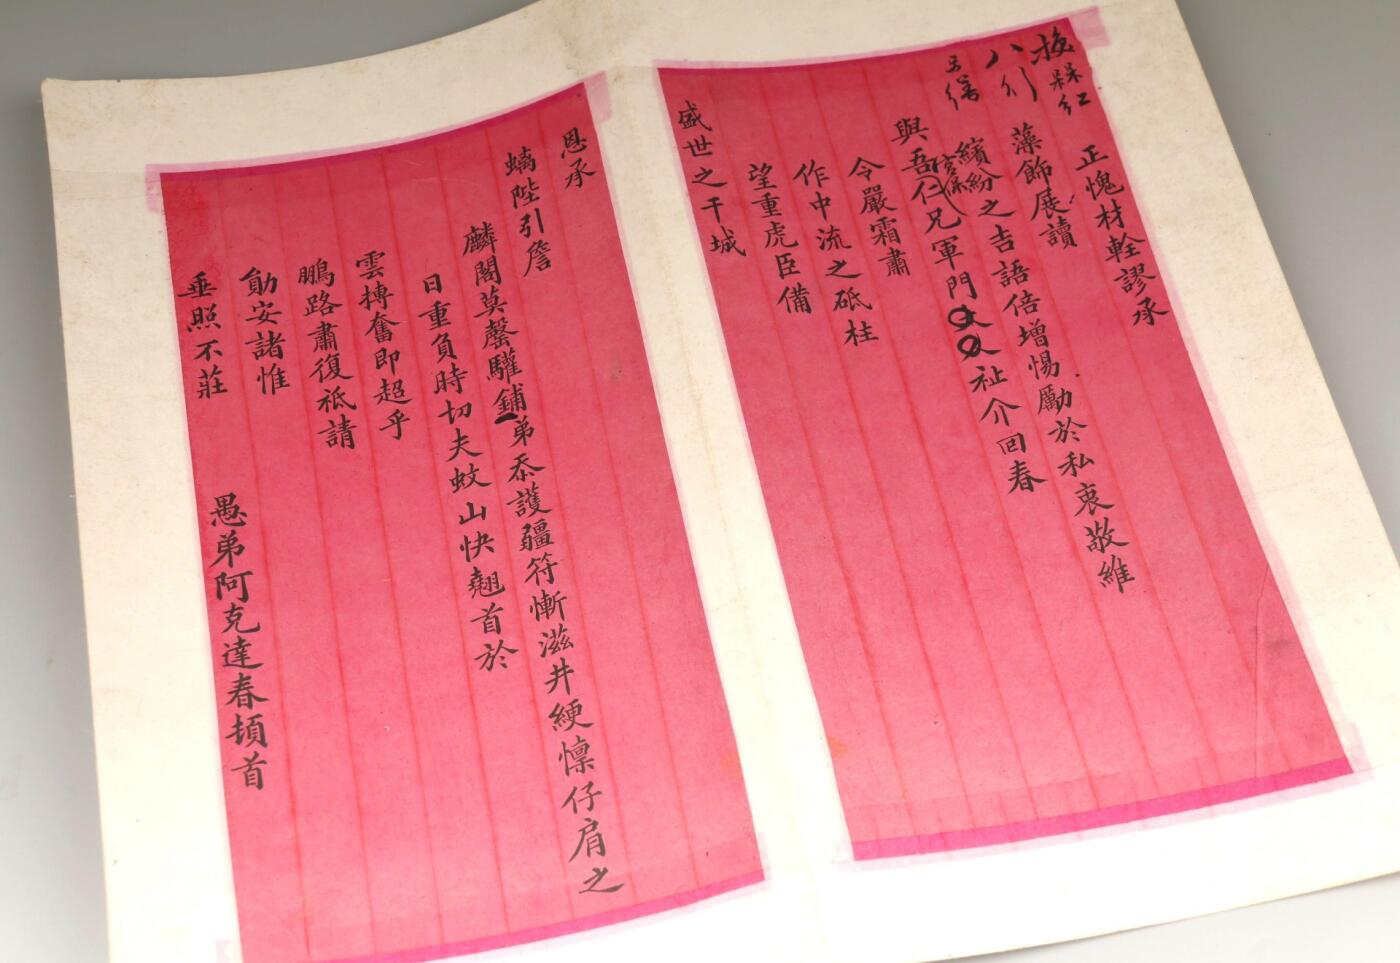 換槑紅
八行
另繕
正愧材輇謬承
藻飾展讀
繽紛之吉語倍增惕勵於私衷敬維
與吾仁兄軍門祉介回春
令嚴霜肅
作中流之砥柱
望重虎臣備
盛世之干城
恩承
螭陛引詹
麟閣莫罄驩鋪弟忝護疆符慚滋井綆懍仔肩之
日重負時切夫蚊山快翹首於
雲摶奮即超乎
鵬路肅復祗請
勛安諸惟
垂照不莊
愚弟阿克達春頓首